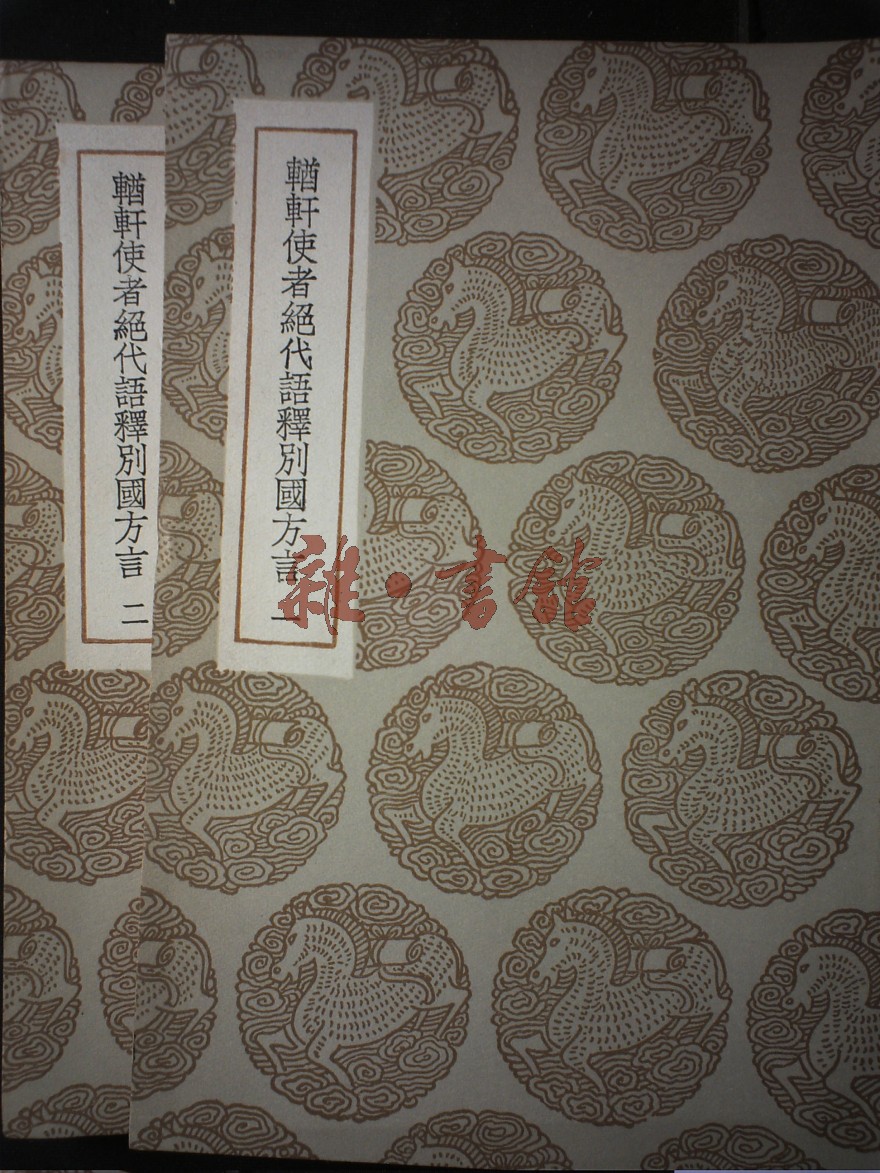 輶軒使者絕代語釋別國方言 一
輶軒使者絕代語釋別國方言 二
雜·書館